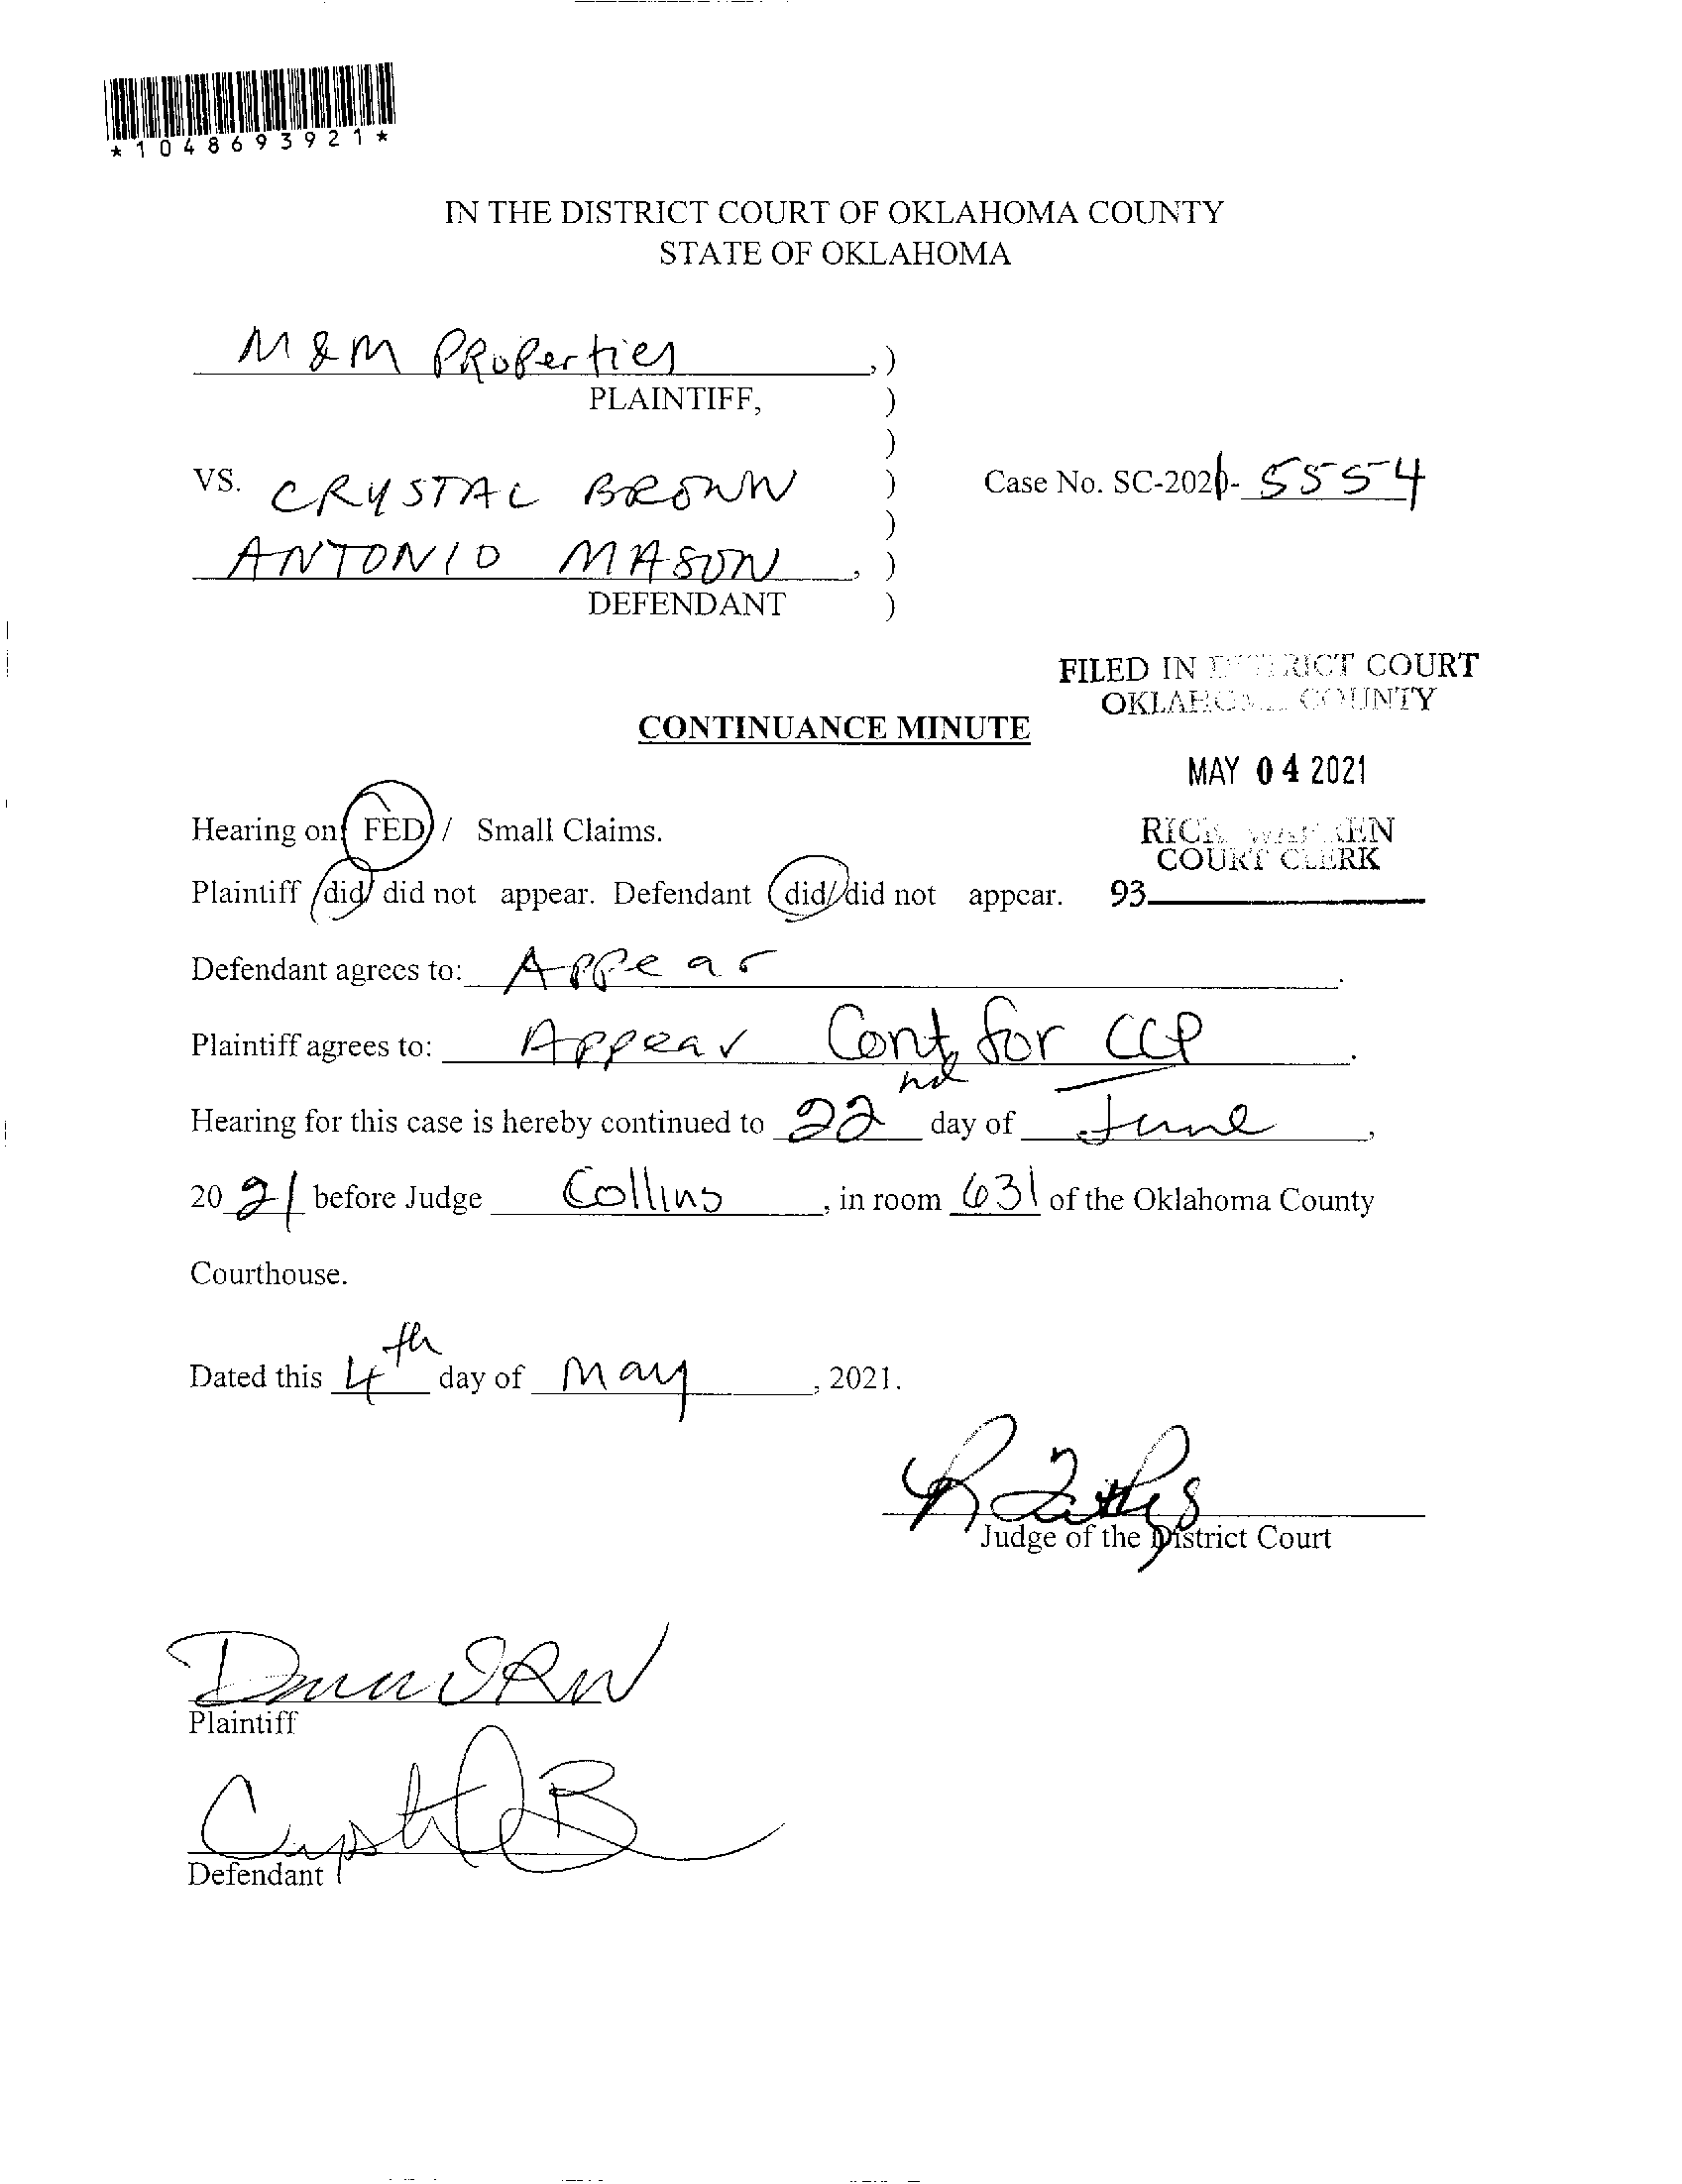 *1048693921*
IN THE DISTRICT COURT OF OKLAHOMA COUNTY
STATE OF OKLAHOMA
M & M PRoPerties ,)
PLAINTIFF, )
)
VS. CRYSTAL BROWN ) Case No. SC-2021- 5554
)
ANTONIO MASON , )
DEFENDANT )
FILED IN DISTRICT COURT
OKLAHOMA COUNTY
CONTINUANCE MINUTE
MAY 04 2021
Hearing on FED / Small Claims.
RICK WARREN
COURT CLERK
Plaintiff did/ did not appear. Defendant did/ did not appear. 93
Defendant agrees to: Appear .
Plaintiff agrees to: Appear Cont, for CCP .
Hearing for this case is hereby continued to 22nd day of June ,
2021 before Judge Collins , in room 631 of the Oklahoma County
Courthouse.
Dated this 4th day of May , 2021.
Judge of the District Court
Plaintiff
Defendant